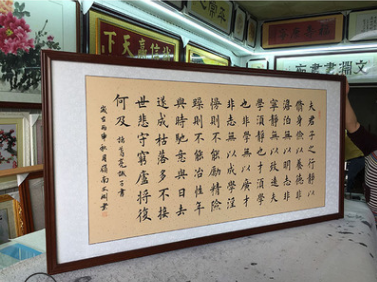 夫君子之行靜以
脩身儉以養德非
澹泊無以明志非
寧靜無以致遠夫
學須靜也才須學
也非學無以廣才
非志無以成學淫
慢則不能勵精險
躁則不能冶性年
與時馳意與日去
遂成枯落多不接
世悲守窮廬將復
何及 諸葛亮誡子書
丙申秋月嶺南
信贏天下